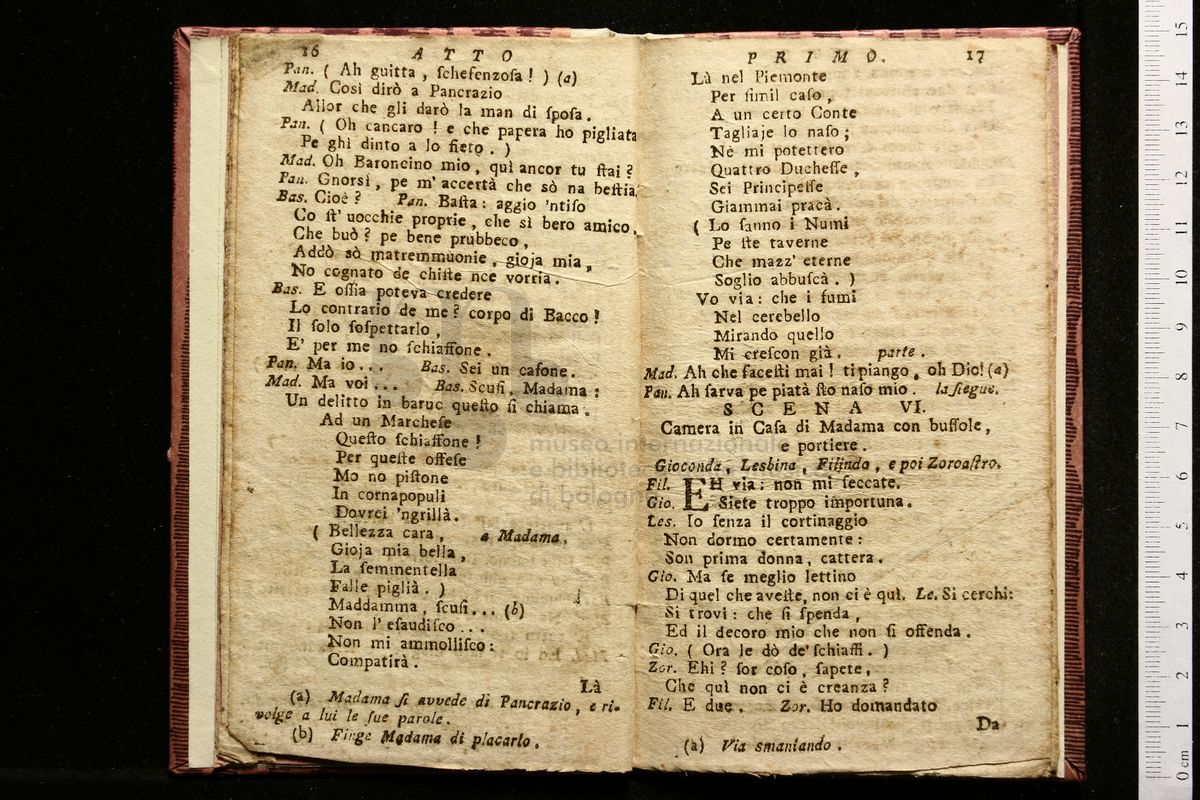 16 ATTO
Pan. ( Ah guitta , ſcheſenzoſa ! ) (a)
Mad. Così dirò a Pancrazio
Allor che gli darò la man di ſpoſa.
Pan. ( Oh cancaro ! e che papera ho pigliata
Pe ghì dinto a lo fieto . )
Mad. Oh Baroncino mio , quì ancor tu ſtai ?
Pan. Gnorsì , pe m' accertà che sò na beſtia.
Bas. Cioè ? Pan. Baſta : aggio 'ntiſo
Co ſt' uocchie proprie , che sì bero amico.
Che buò ? pe bene prubbeco ,
Addò sò matremmuonie , gioja mia ,
No cognato de chiſte nce vorria .
Bas. E oſſia poteva credere
Lo contrario de me ? corpo di Bacco !
Il ſolo ſoſpettarlo ,
E' per me no ſchiaffone .
Pan. Ma io ... Bas. Sei un cafone .
Mad. Ma voi ... Bas. Scuſi , Madama :
Un delitto in baruc queſto ſi chiama .
Ad un Marcheſe
Queſto ſchiaffone !
Per queſte offeſe
Mo no piſtone
In cornapopuli
Dovrei 'ngrillà .
( Bellezza cara , a Madama .
Gioja mia bella ,
La femmentella
Falle piglià . )
Maddamma , ſcuſi ... (b)
Non l' eſaudiſco ...
Non mi ammolliſco :
Compatirà .
Là
(a) Madama ſi avvede di Pancrazio , e ri-
volge a lui le ſue parole .
(b) Finge Madama di placarlo .
PRIMO. 17
Là nel Piemonte
Per ſimil caſo ,
A un certo Conte
Tagliaje lo naſo ;
Nè mi potettero
Quattro Ducheſſe ,
Sei Principeſſe
Giammai pracà .
( Lo ſanno i Numi
Pe ſte taverne
Che mazz' eterne
Soglio abbuſcà . )
Vo via : che i fumi
Nel cerebello
Mirando quello
Mi creſcon già . parte .
Mad. Ah che faceſti mai ! ti piango , oh Dio! (a)
Pan. Ah ſarva pe piatà ſto naſo mio . la ſiegue.
SCENA VI.
Camera in Caſa di Madama con buſſole ,
e portiere .
Gioconda , Lesbina , Filinda , e poi Zoroaſtro.
Fil. EH via : non mi ſeccate.
Gio. Siete troppo importuna .
Les. Io ſenza il cortinaggio
Non dormo certamente :
Son prima donna , cattera .
Gio. Ma ſe meglio lettino
Di quel che aveſte, non ci è quì. Le. Si cerchi:
Si trovi : che ſi ſpenda ,
Ed il decoro mio che non ſi offenda .
Gio. ( Ora le dò de' ſchiaffi . )
Zor. Ehi ? ſor coſo , ſapete ,
Che quì non ci è creanza ?
Fil. E due . Zor. Ho domandato
Da
(a) Via smaniando .
museo internazionale
e biblioteca
di bologna